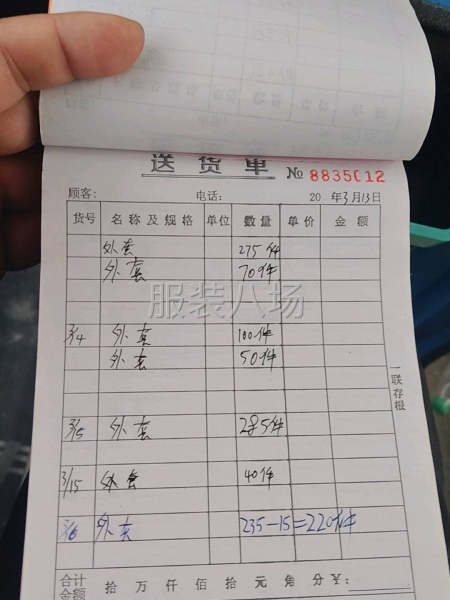 送货单 № 8835012
顾客: 电话: 20 年3月13日
货号 名称及规格 单位 数量 单价 金额
外套 275件
外套 70件
服装八场
3/4 外套 100件
外套 50件
3/5 外套 285件
3/15 外套 40件
外套 235-15=220件
合计金额 拾 万 仟 佰 拾 元 角 分 ¥:
一联存根